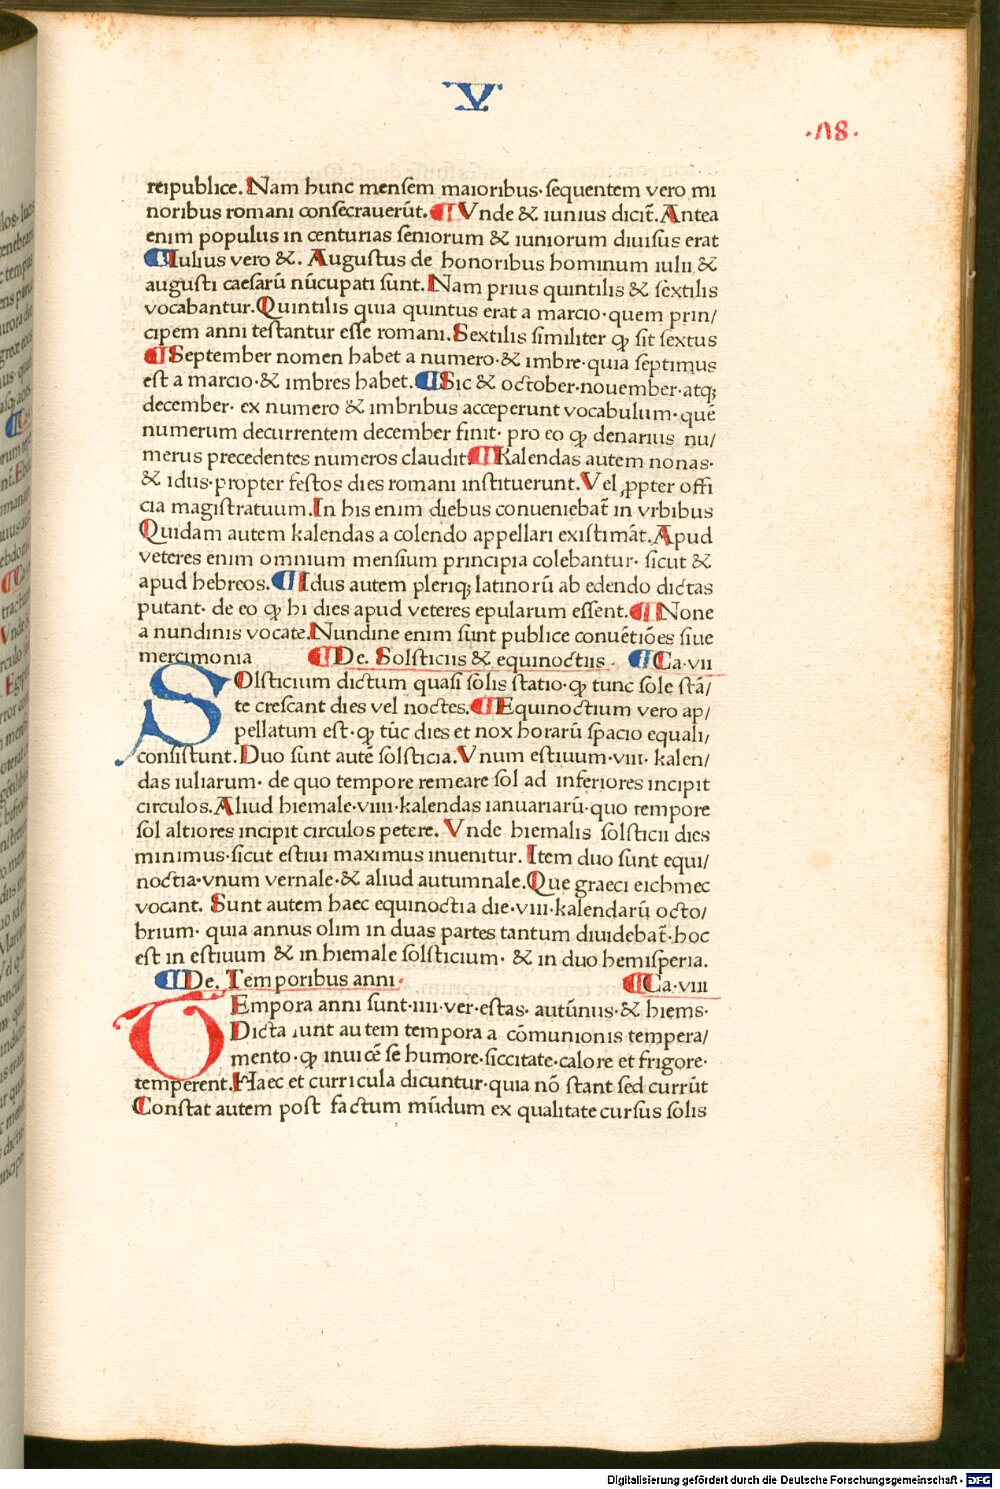 V
·Λ8·
reipublice. Nam hunc mensem maioribus· sequentem vero mi
noribus romani consecrauerūt. ¶ Vnde & iunius dicit̄. Antea
enim populus in centurias seniorum & iuniorum diuisus erat
¶ Iulius vero &. Augustus de honoribus hominum iulii &
augusti caesarū nūcupati sunt. Nam prius quintilis & sextilis
vocabantur. Quintilis quia quintus erat a marcio· quem prin/
cipem anni testantur esse romani. Sextilis similiter ꝙ sit sextus
¶ September nomen habet a numero· & imbre· quia septimus
est a marcio· & imbres habet. ¶ Sic & october· nouember· atqꝫ
december· ex numero & imbribus acceperunt vocabulum· quē
numerum decurrentem december finit· pro eo ꝙ denarius nu/
merus precedentes numeros claudit ¶ Kalendas autem nonas·
& idus· propter festos dies romani instituerunt. Vel ꝓpter offi
cia magistratuum. In his enim diebus conueniebat̄ in vrbibus
Quidam autem kalendas a colendo appellari existimāt. Apud
veteres enim omnium mensium principia colebantur· sicut &
apud hebreos. ¶ Idus autem pleriqꝫ latinorū ab edendo dictas
putant· de eo ꝙ hi dies apud veteres epularum essent. ¶ None
a nundinis vocate. Nundine enim sunt publice conuētiōes siue
mercimonia ¶ De. Solsticiis & equinoctiis · ¶ Ca·vii
SOlsticium dictum quasi solis statio· ꝙ tunc sole stā/
te crescant dies vel noctes. ¶ Equinoctium vero ap/
pellatum est· ꝙ tūc dies et nox horarū spacio equali/
consistunt. Duo sunt autē solsticia. Vnum estiuum·viii· kalen/
das iuliarum· de quo tempore remeare sol ad inferiores incipit
circulos. Aliud hiemale·viii·kalendas ianuariarū· quo tempore
sol altiores incipit circulos petere. Vnde hiemalis solsticii dies
minimus· sicut estiui maximus inuenitur. Item duo sunt equi/
noctia· vnum vernale· & aliud autumnale. Que graeci eichmec
vocant. Sunt autem haec equinoctia die·viii·kalendarū octo/
brium· quia annus olim in duas partes tantum diuidebat̄· hoc
est in estiuum & in hiemale solsticium· & in duo hemisperia.
¶ De. Temporibus anni· ¶ Ca·viii
TEmpora anni sunt·iiii·ver·estas· autūnus· & hiems·
Dicta sunt autem tempora a cōmunionis tempera/
mento· ꝙ inuicē se humore· siccitate· calore et frigore·
temperent. Haec et curricula dicuntur· quia nō stant sed currūt
Constat autem post factum mūdum ex qualitate cursus solis
Digitalisierung gefördert durch die Deutsche Forschungsgemeinschaft - DFG